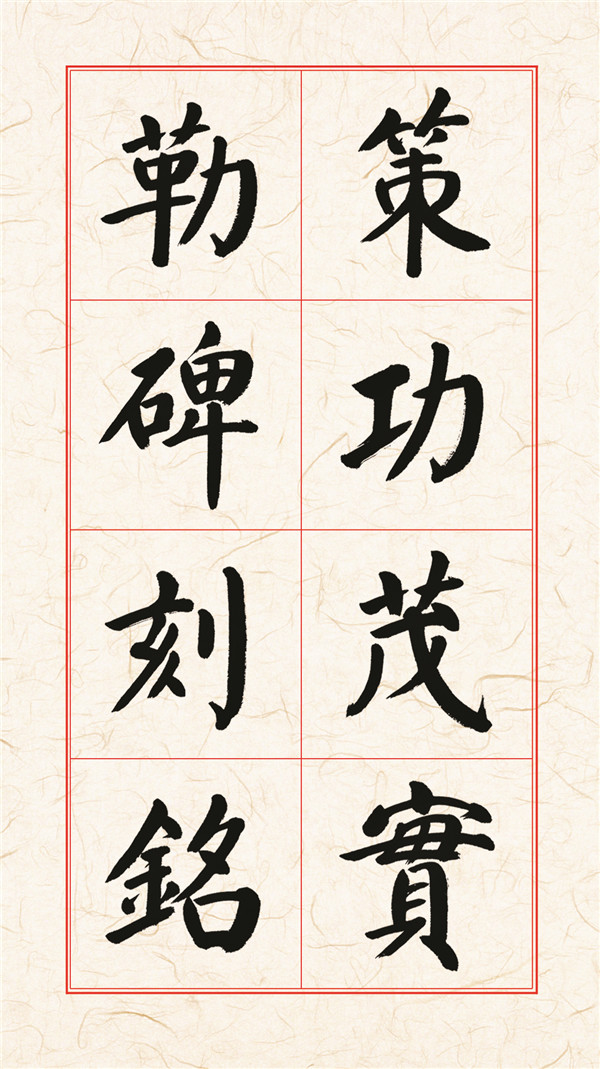 策功茂實
勒碑刻銘